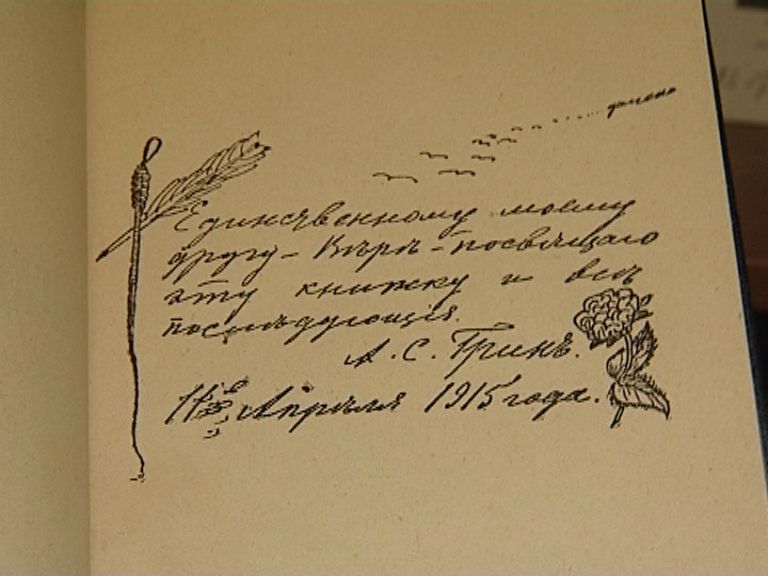 Единственному моему
другу – Вѣрѣ – посвящаю
эту книжку и всѣ
послѣдующія.
А. С. Гринъ.
11го Апрѣля 1915 года.